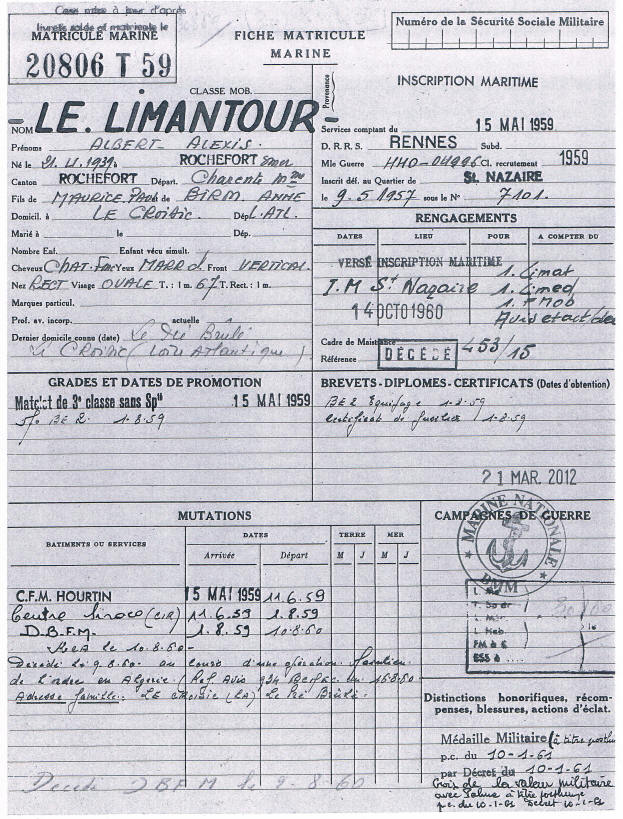 Case mise à jour d'après
livrets solde et matricule le
MATRICULE MARINE
20806 T 59
FICHE MATRICULE
MARINE
Numéro de la Sécurité Sociale Militaire
CLASSE MOB.
Provenance
INSCRIPTION MARITIME
NOM LE. LIMANTOUR
Prénoms ALBERT ALEXIS.
Né le 21. 4. 1939 à ROCHEFORT s/mer
Canton ROCHEFORT Départ. Charente Mme
Fils de MAURICE. PAUL de BIRM. ANNE
Domicil. à LE CROISIC. Dép. L. ATL.
Marié à le Dép.
Nombre Enf. Enfant vécu simult.
Cheveux CHAT. Fmc Yeux MARR d Front VERTICAL.
Nez RECT Visage OVALE T. : 1 m. 67 T. Rect. : 1 m.
Marques particul.
Prof. av. incorp. actuelle
Dernier domicile connu (date) Le Pré Brulé
Le CROISIC (Loire Atlantique)
Services comptant du 15 MAI 1959
D. R. R. S. RENNES Subd.
Mle Guerre HHO-04996 Cl. recrutement 1959
Inscrit déf. au Quartier de St. NAZAIRE
le 9. 5 1957 sous le N° 7101.
RENGAGEMENTS
DATES LIEU POUR A COMPTER DU
VERSÉ INSCRIPTION MARITIME
I. M St Nazaire
14 OCTO 1960
1. Limat
1. Limed
1. F Mob
Avis et act
Cadre de Maistance
Référence DÉCÉDÉ 453/15
GRADES ET DATES DE PROMOTION
Matelot de 3e classe sans Spté 15 MAI 1959
BE 2. 1.8.59
BREVETS - DIPLOMES - CERTIFICATS (Dates d'obtention)
BE2 Equipage 1-8-59
Certificat de fusilier 1.8.59
21 MAR. 2012
MUTATIONS
BATIMENTS OU SERVICES DATES TERRE MER
Arrivée Départ M J M J
C.F.M. HOURTIN 15 MAI 1959 11.6.59
Centre Siroco (CIR) 11.6.59 1.8.59
D.B.F.M. 1.8.59 10.8.60
le 10.8.60-
Décédé le 9.8.60. au cours d'une opération
de l'ordre en Algérie (Réf. Avis 934 un 16.8.60
Adresse famille: LE CROISIC (LA) Le Pré Brûlé.
Decede DBFM le 9-8-60
CAMPAGNES DE GUERRE
MARINE NATIONALE
BMM
FM à 6
ESS à
Distinctions honorifiques, récom-
penses, blessures, actions d'éclat.
Médaille Militaire (à titre posthume
p.c. du 10-1-61
par Décret du 10-1-61
Croix de la valeur militaire
avec Palme à titre posthume
p.c. du 10-1-61 Décret 10-1-61